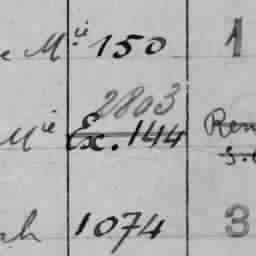 e Mie 150 1
2803
Mie Ex. 144 Ren
ch 1074 3